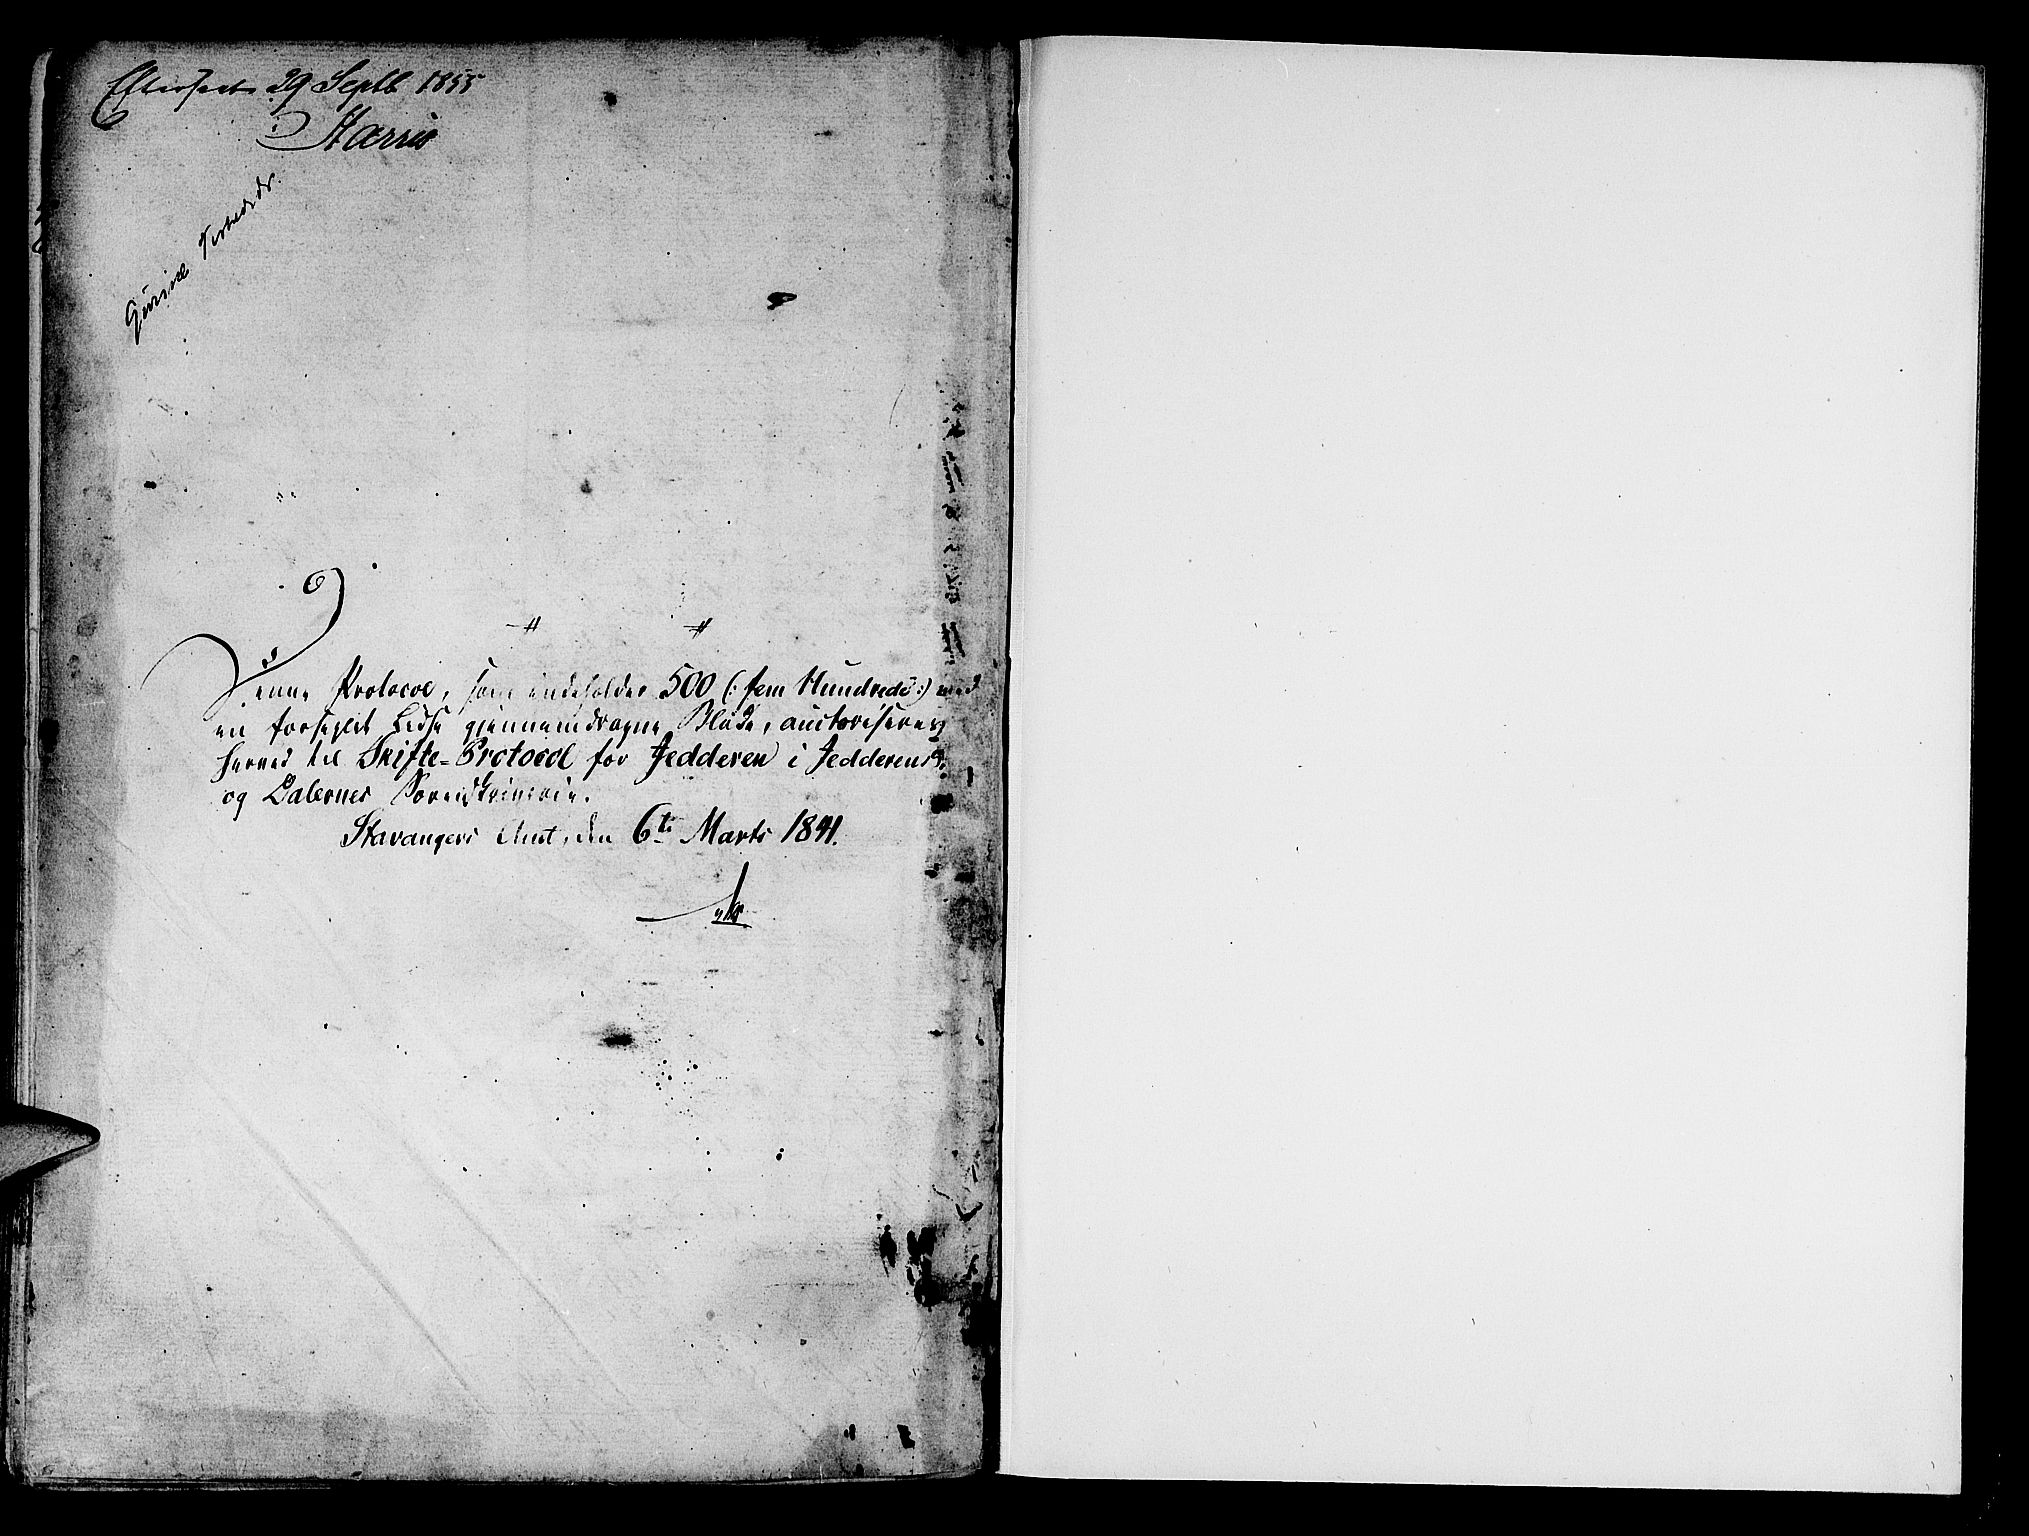 Efterseet 29 Septb 1855
Denne Protocol, som indeholder 500 (: fem Hundrede :) med
en forseglet Lidse gjennemdragne Blade, auctoriseres
herved til Skifte-Protocol for Jedderen i Jedderens
og Dalernes Sorenskriverie.
Stavangers Amt, den 6te Marts 1841.